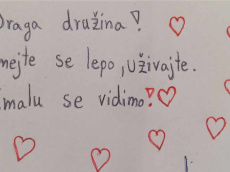 Draga družina!
mejte se lepo, uživajte.
malu se vidimo!